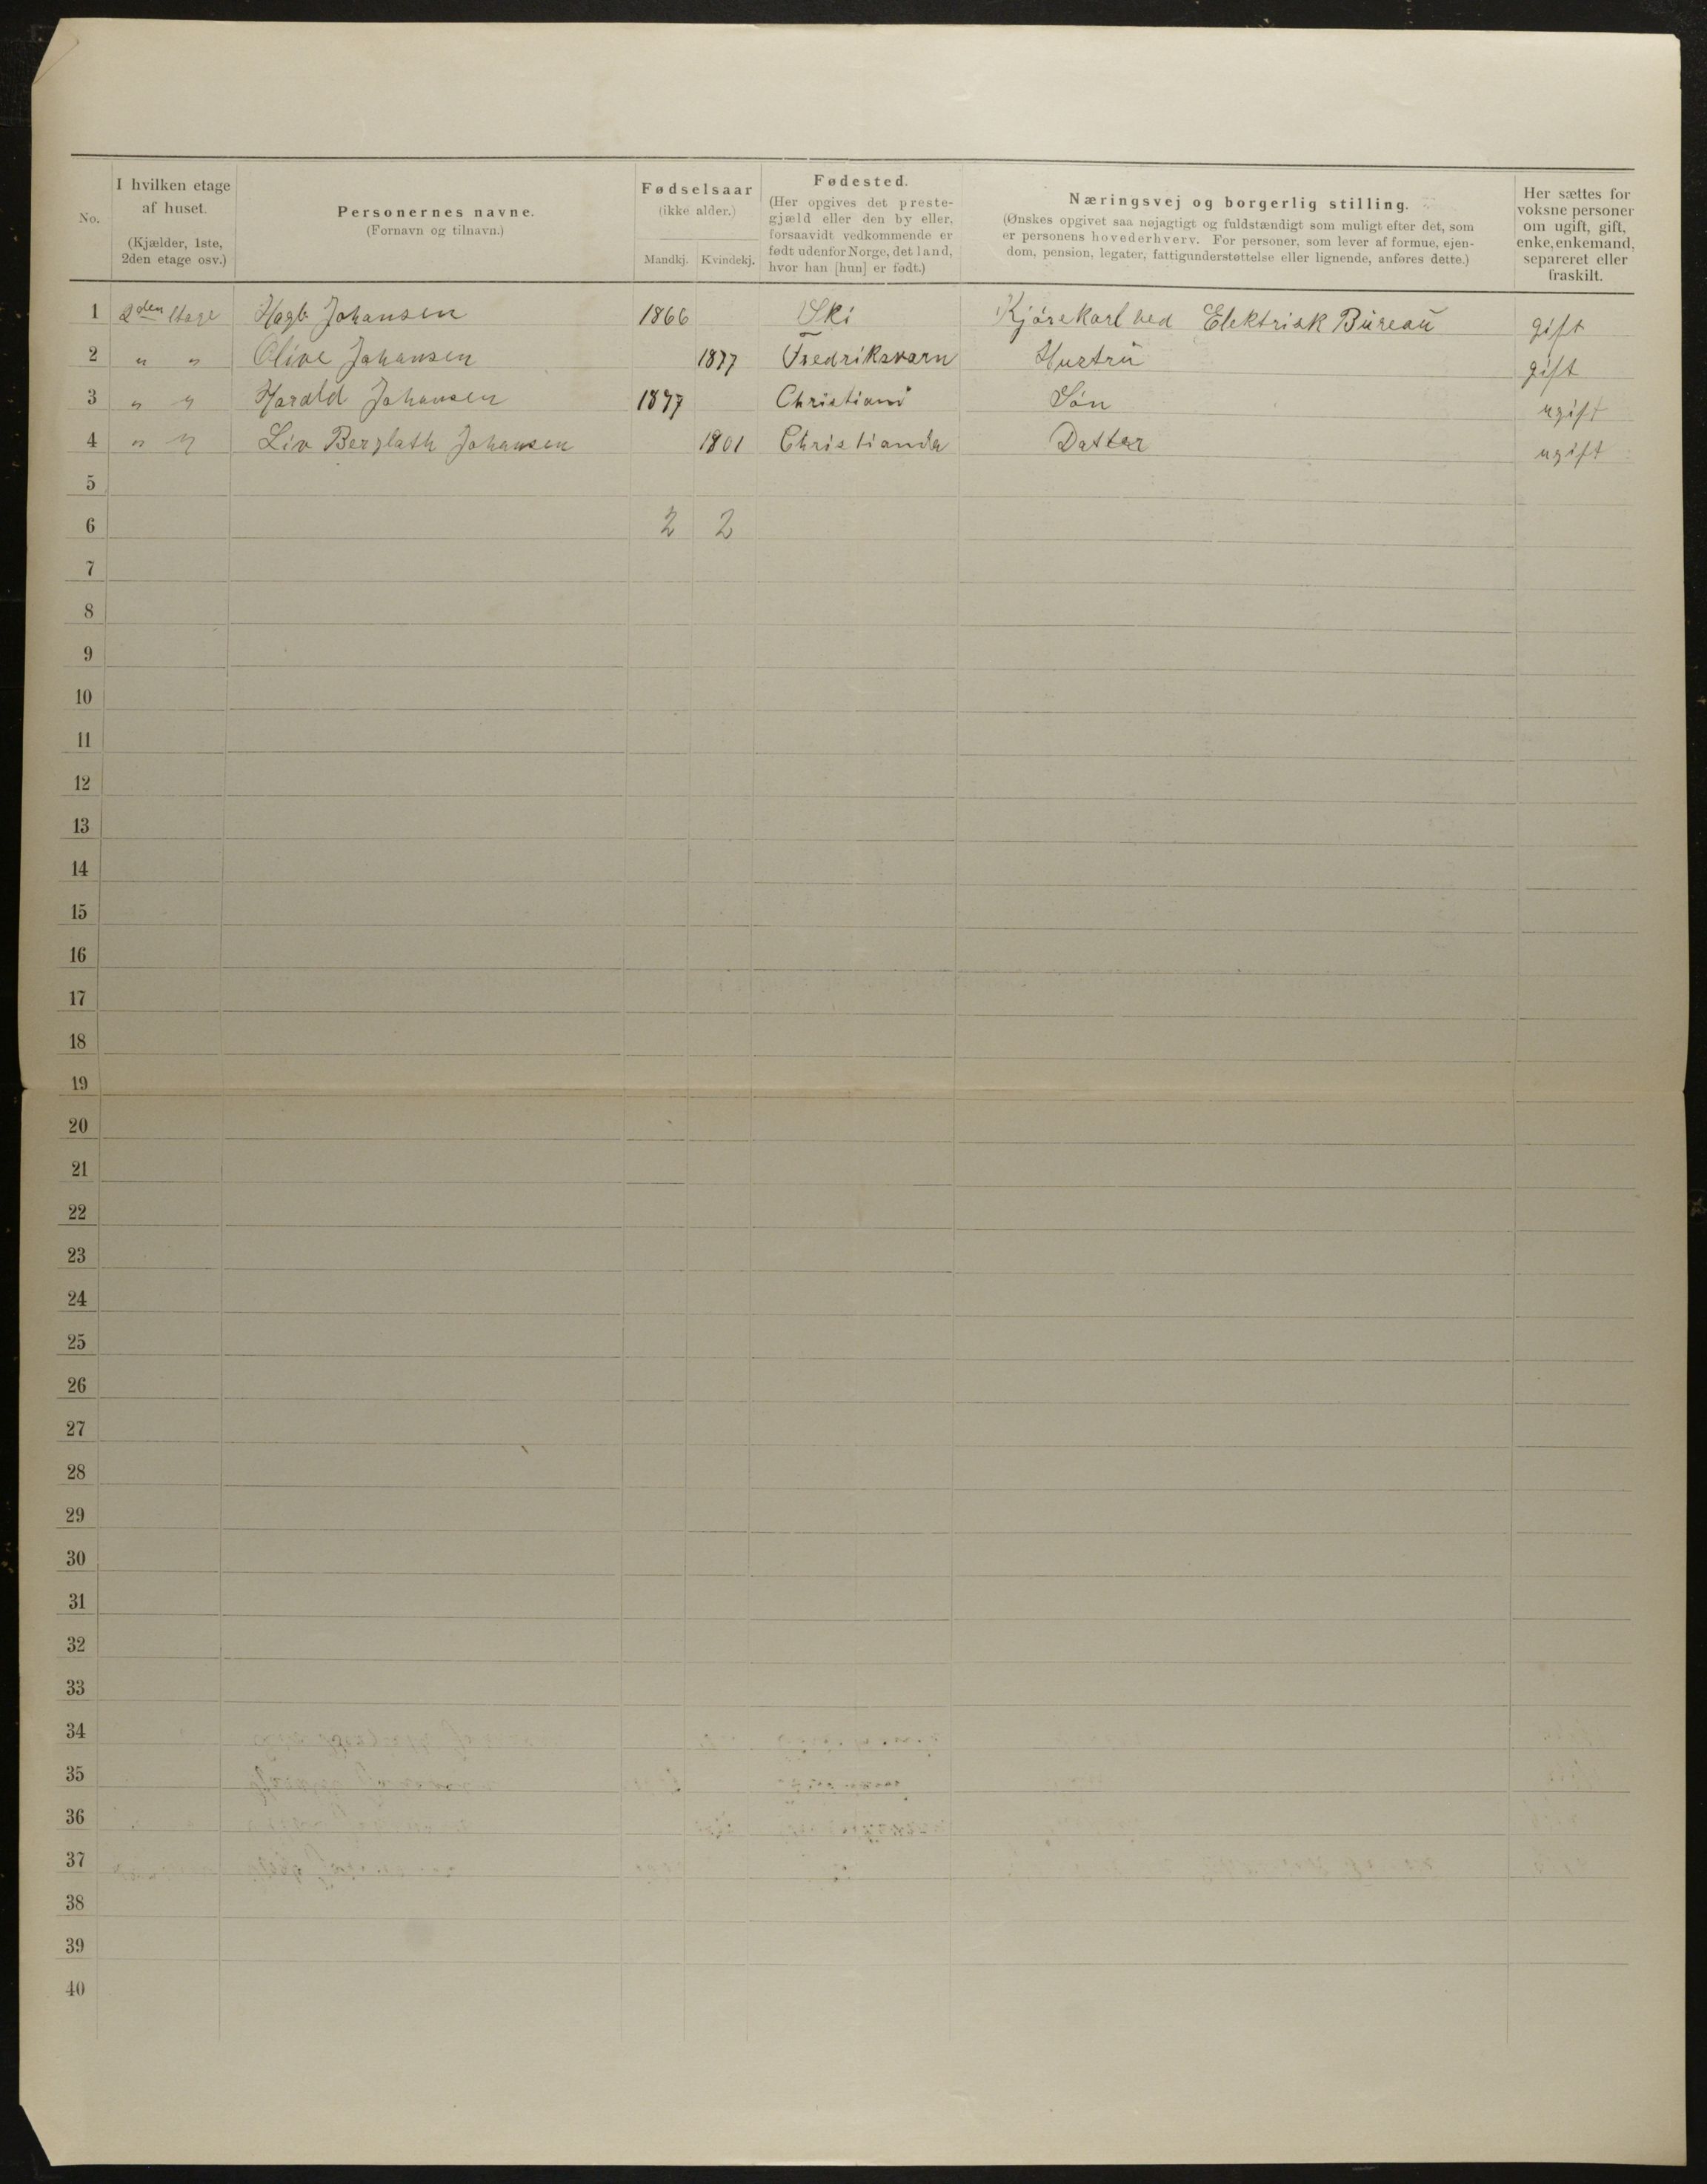 No.
I hvilken etage
af huset.
(Kjælder, 1ste,
2den etage osv.)
Personernes navne.
(Fornavn og tilnavn.)
Fødselsaar
(ikke alder.)
Mandkj. Kvindekj.
Fødested.
(Her opgives det preste-
gjæld eller den by eller,
forsaavidt vedkommende er
født udenfor Norge, det land,
hvor han [hun] er født.)
Næringsvej og borgerlig stilling.
(Ønskes opgivet saa nøjagtigt og fuldstændigt som muligt efter det, som
er personens hovederhverv. For personer, som lever af formue, ejen-
dom, pension, legater, fattigunderstøttelse eller lignende, anføres dette.)
Her sættes for
voksne personer
om ugift, gift,
enke, enkemand,
separeret eller
fraskilt.
1 2den Etage Hagb. Johansen 1866 Ski Kjörekarl ved Elektrisk Büreaü gift
2 " " Olive Johansen 1877 Fredriksværn Hustrü gift
3 " " Harald Johansen 1897 Søn ugift
4 " " Liv Johansen Christiania Datter ugift
5
6 2 2
7
8
9
10
11
12
13
14
15
16
17
18
19
20
21
22
23
24
25
26
27
28
29
30
31
32
33
34
35
36
37
38
39
40